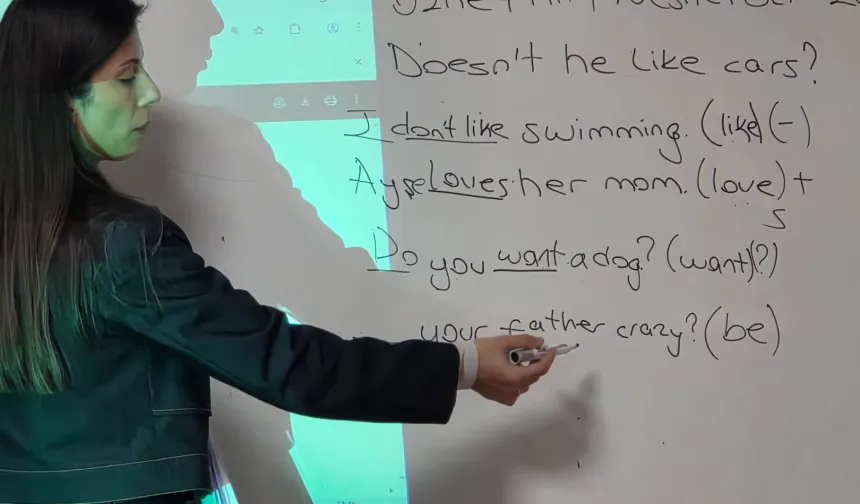 Doesn't he like cars?
I don't like swimming. (like) (-)
Ayşe loves her mom. (love) +
s
Do you want a dog? (want) (?)
your father crazy? (be)